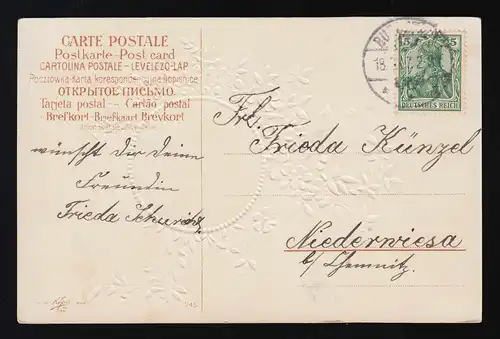 CARTE POSTALE
Postkarte-Post card
CARTOLINA POSTALE-LEVELEZÖ-LAP
Pocztówka-Karta korespondencyjna-Dopisnice
ОТКРЫТОЕ ПИСЬМО
Tarjeta postal -- Cartão postal
Brefkort-Briefkaart-Brevkort
wünscht Dir Deine
Freundin
Frieda
Frl.
Frieda Künzel
Niederwiesa
b/ Chemnitz.
5 5
DEUTSCHES REICH
18.